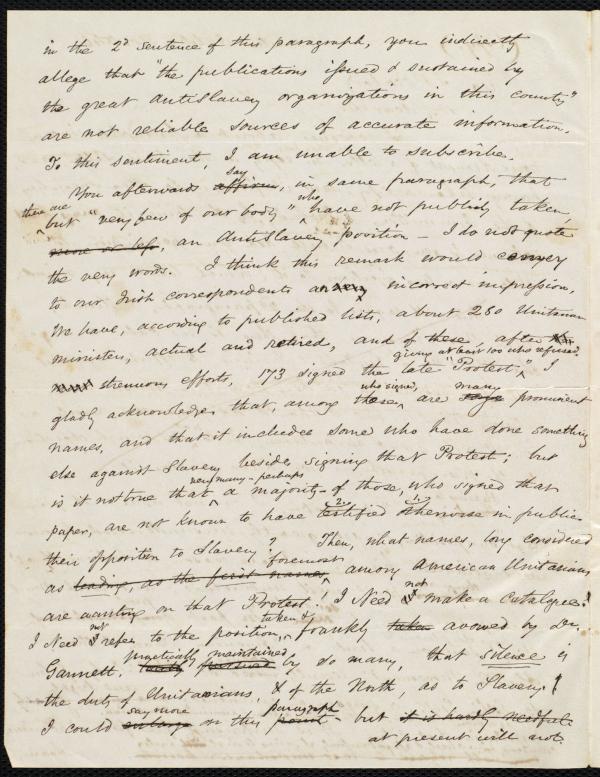 in the 2d sentence of this paragraph, you indirectly
allege that "the publications issued & sustained by
the great AntiSlavery organizations in this country"
are not reliable sources of accurate information.
To this sentiment, I am unable to subscribe.
You afterwards affirm, say in same paragraph, that
there are but "very few of our body" who have not publicly taken,
more or less, an AntiSlavery position – I do not quote
the very words. I think this remark would convey
to our Irish correspondents an very incorrect impression.
We have, according to published lists, about 260 Unitarian
ministers, actual and retired, and of these, after
giving at least 100 who refused,
strenuous efforts, 173 signed the late "Protest". I
gladly acknowledge that, among these, who signed, are many prominent
names, and that it includes some who have done something
else against Slavery besides signing that Protest; but
is it not true that very many – perhaps a majority – of those, who signed that
paper, are not known to have testified otherwise in public
2. 1.
their opposition to Slavery? Then, what names, long considered
as leading, as the first names, foremost among American Unitarians
are wanting on that Protest! I Need not make a catalogue!
I Need not refer to the position, taken & frankly taken avowed by Dr.
Gannett, practically maintained by so many, that silence is
the duty of Unitarians, & of the North, as to Slavery!
I could enlarge say more on this point paragraph – but it is hardly needful
at present will not.